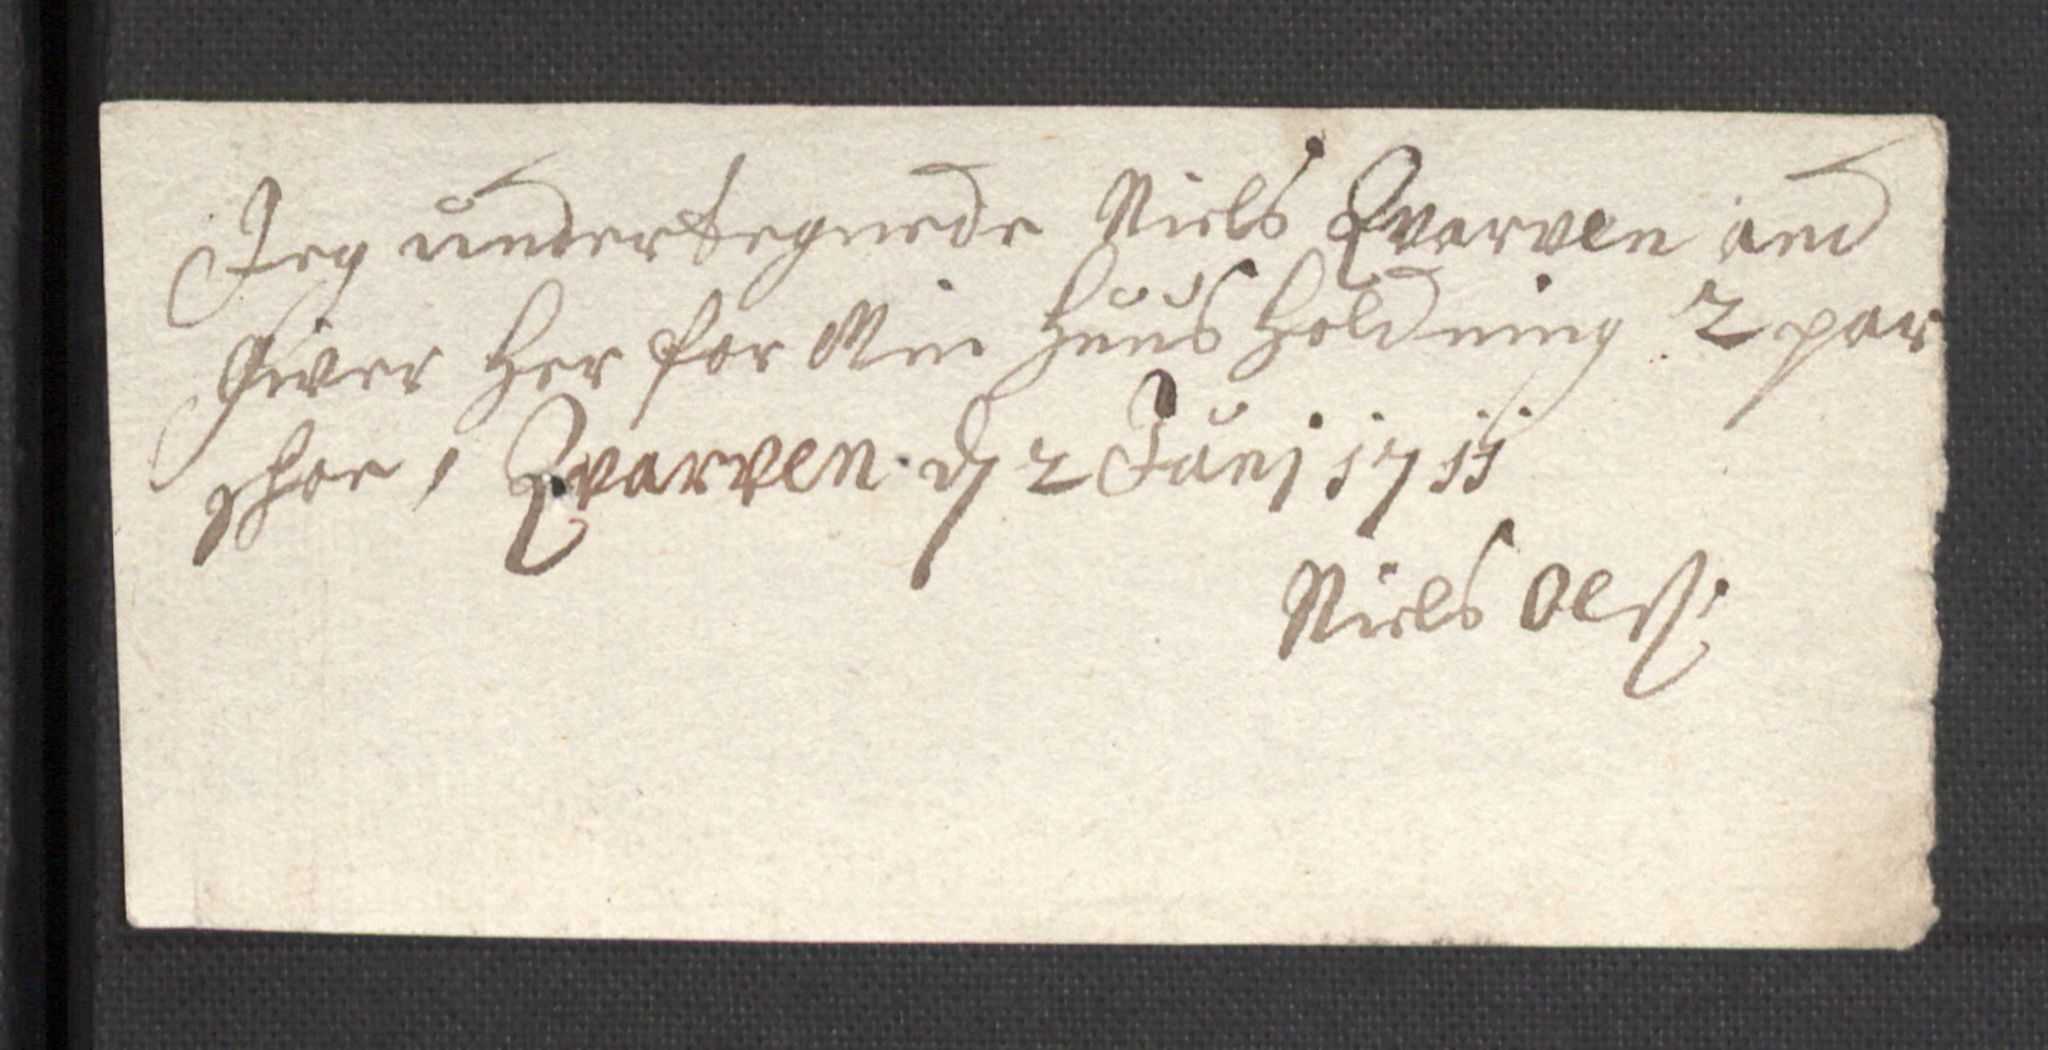 Jeg undertegnede Niels Qvarven and
Giver Her for Min Huus Holdning 2 par
schoe, Qvarven d 2 Junj 1711
Niels Olß: